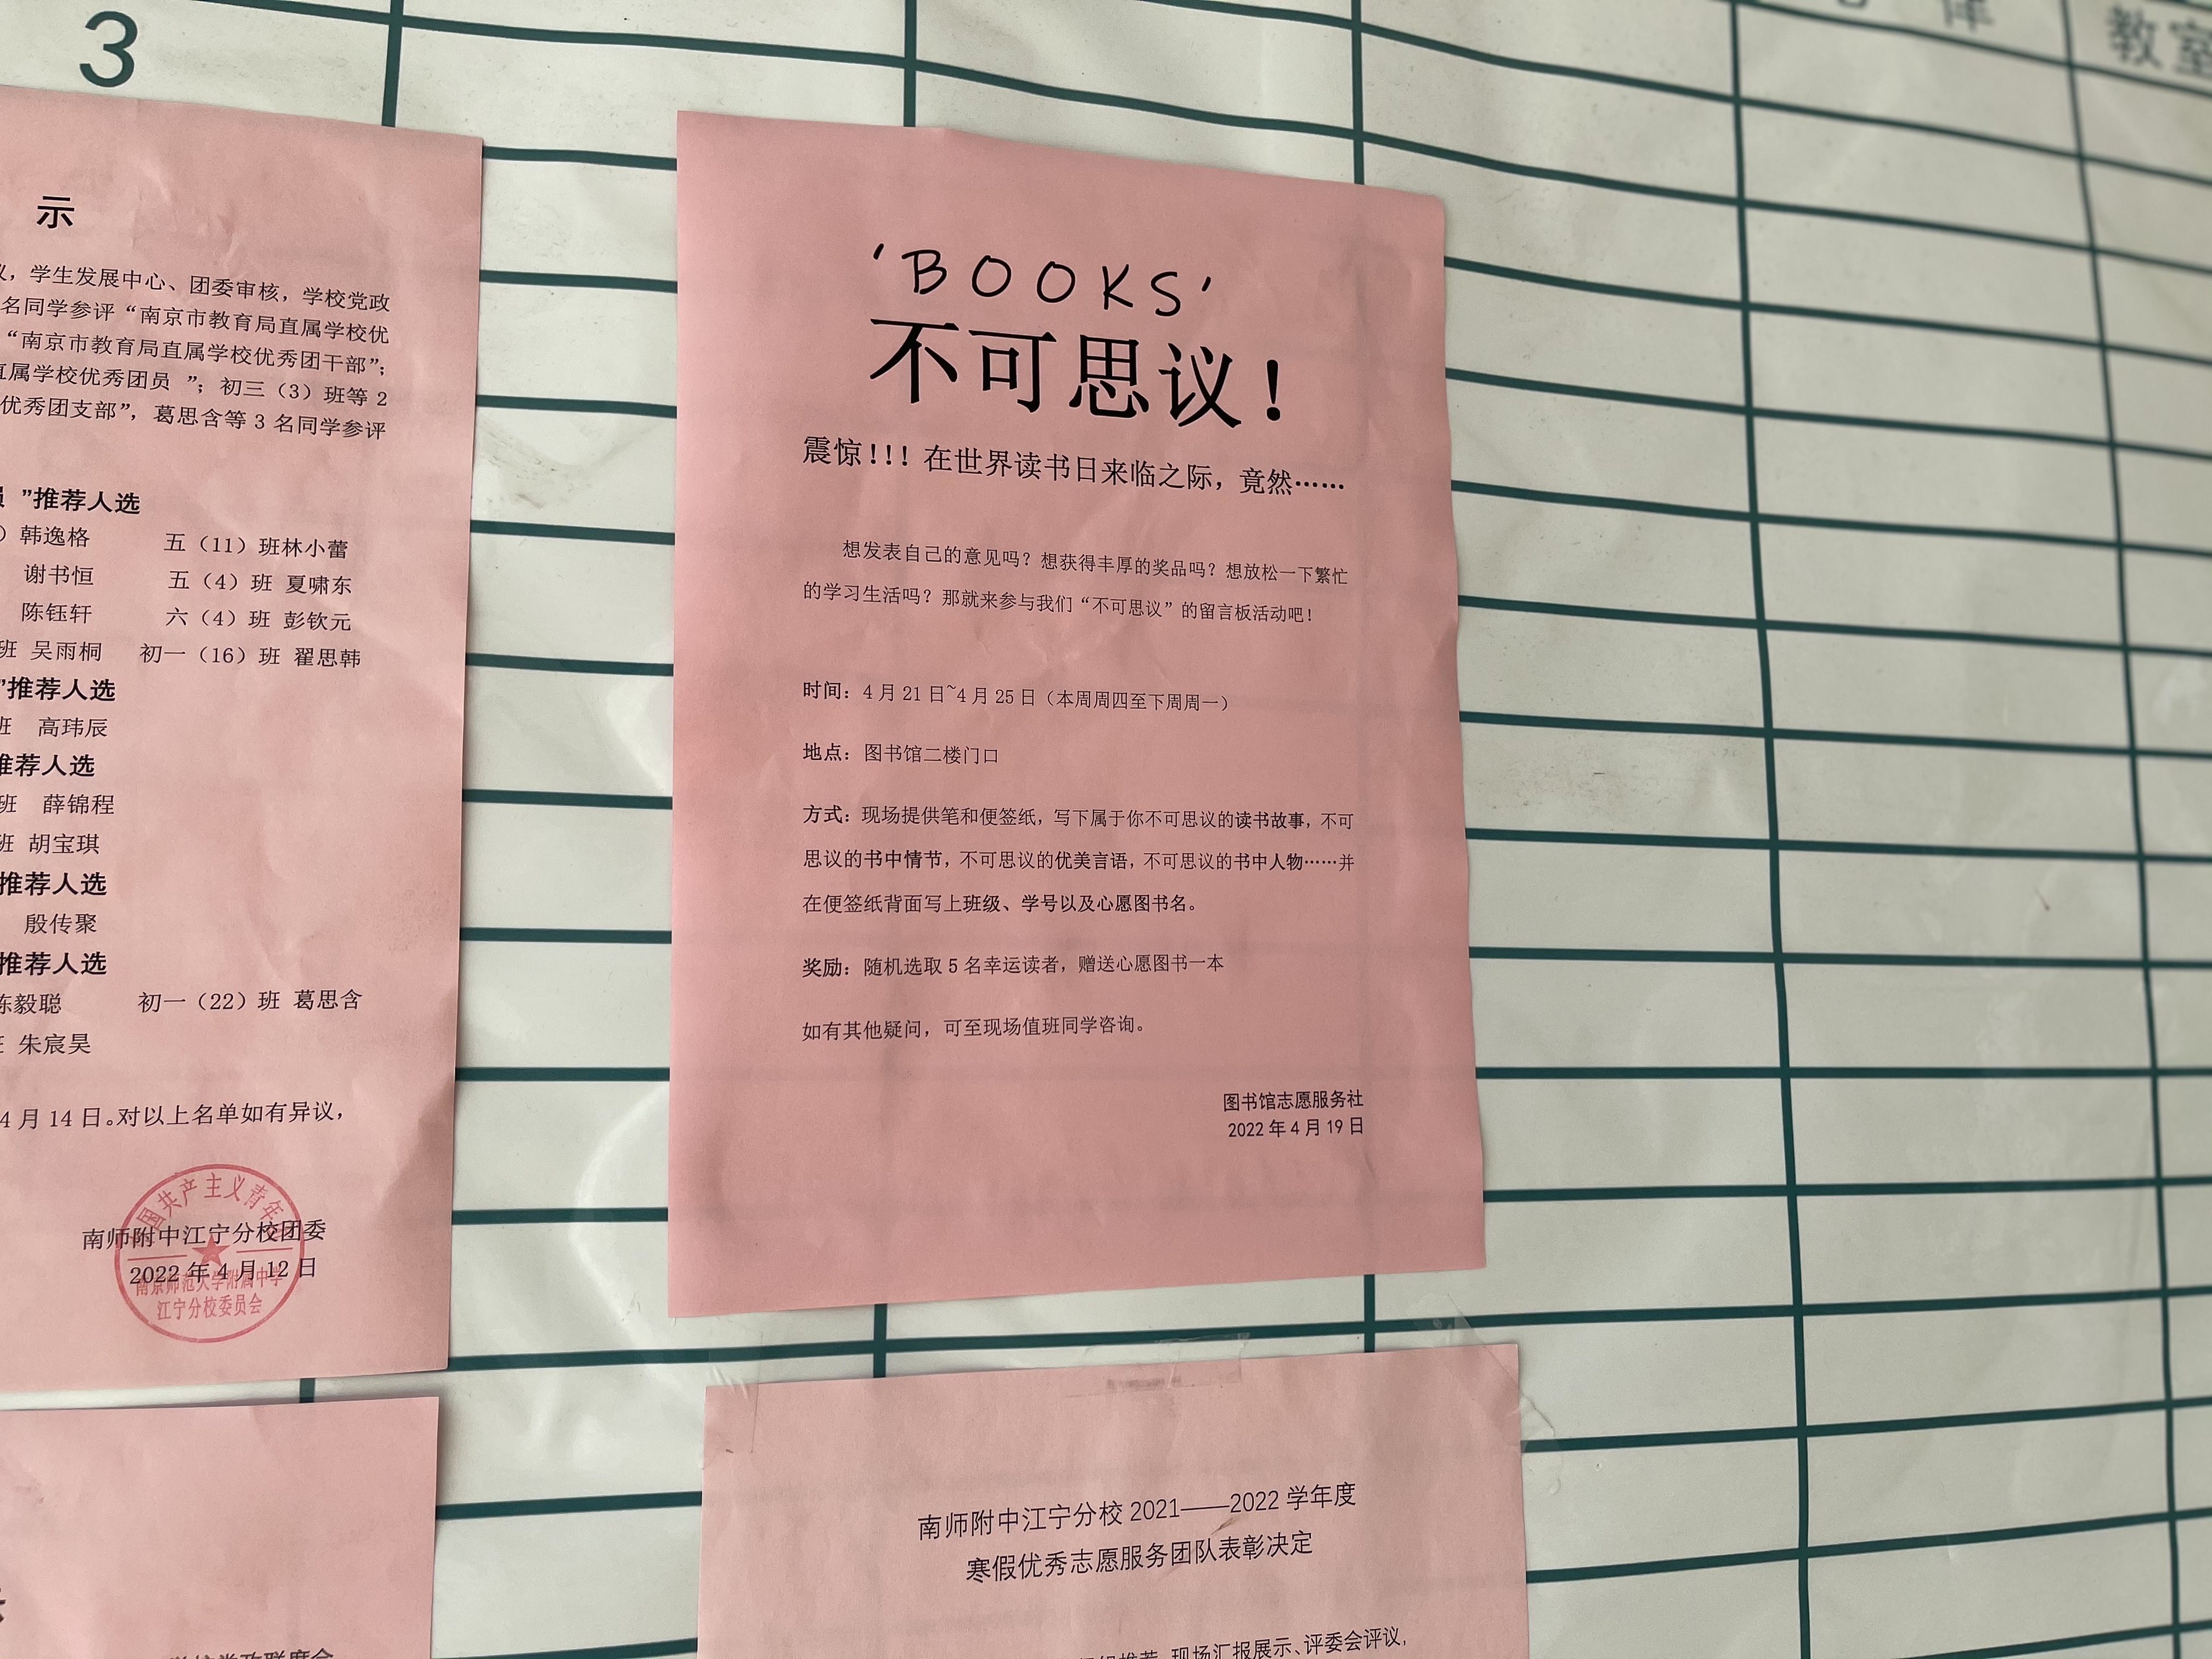 3
教室
示
，学生发展中心、团委审核，学校党政
名同学参评“南京市教育局直属学校优
“南京市教育局直属学校优秀团干部”；
直属学校优秀团员 ”；初三（3）班等 2
优秀团支部”，葛思含等 3 名同学参评
”推荐人选
）韩逸格 五（11）班林小蕾
谢书恒 五（4）班 夏啸东
陈钰轩 六（4）班 彭钦元
班 吴雨桐 初一（16）班 翟思韩
”推荐人选
班 高玮辰
推荐人选
班 薛锦程
班 胡宝琪
推荐人选
殷传聚
推荐人选
陈毅聪 初一（22）班 葛思含
朱宸昊
4 月 14 日。对以上名单如有异议，
南师附中江宁分校团委
2022 年 4 月 12 日
国共产主义青年
南京师范大学附属中学
江宁分校委员会
‘BOOKS’
不可思议！
震惊！！！在世界读书日来临之际，竟然……
想发表自己的意见吗？想获得丰厚的奖品吗？想放松一下繁忙
的学习生活吗？那就来参与我们“不可思议”的留言板活动吧！
时间：4 月 21 日~4 月 25 日（本周周四至下周周一）
地点：图书馆二楼门口
方式：现场提供笔和便签纸，写下属于你不可思议的读书故事，不可
思议的书中情节，不可思议的优美言语，不可思议的书中人物……并
在便签纸背面写上班级、学号以及心愿图书名。
奖励：随机选取 5 名幸运读者，赠送心愿图书一本
如有其他疑问，可至现场值班同学咨询。
图书馆志愿服务社
2022 年 4 月 19 日
南师附中江宁分校 2021——2022 学年度
寒假优秀志愿服务团队表彰决定
推荐、现场汇报展示、评委会评议，